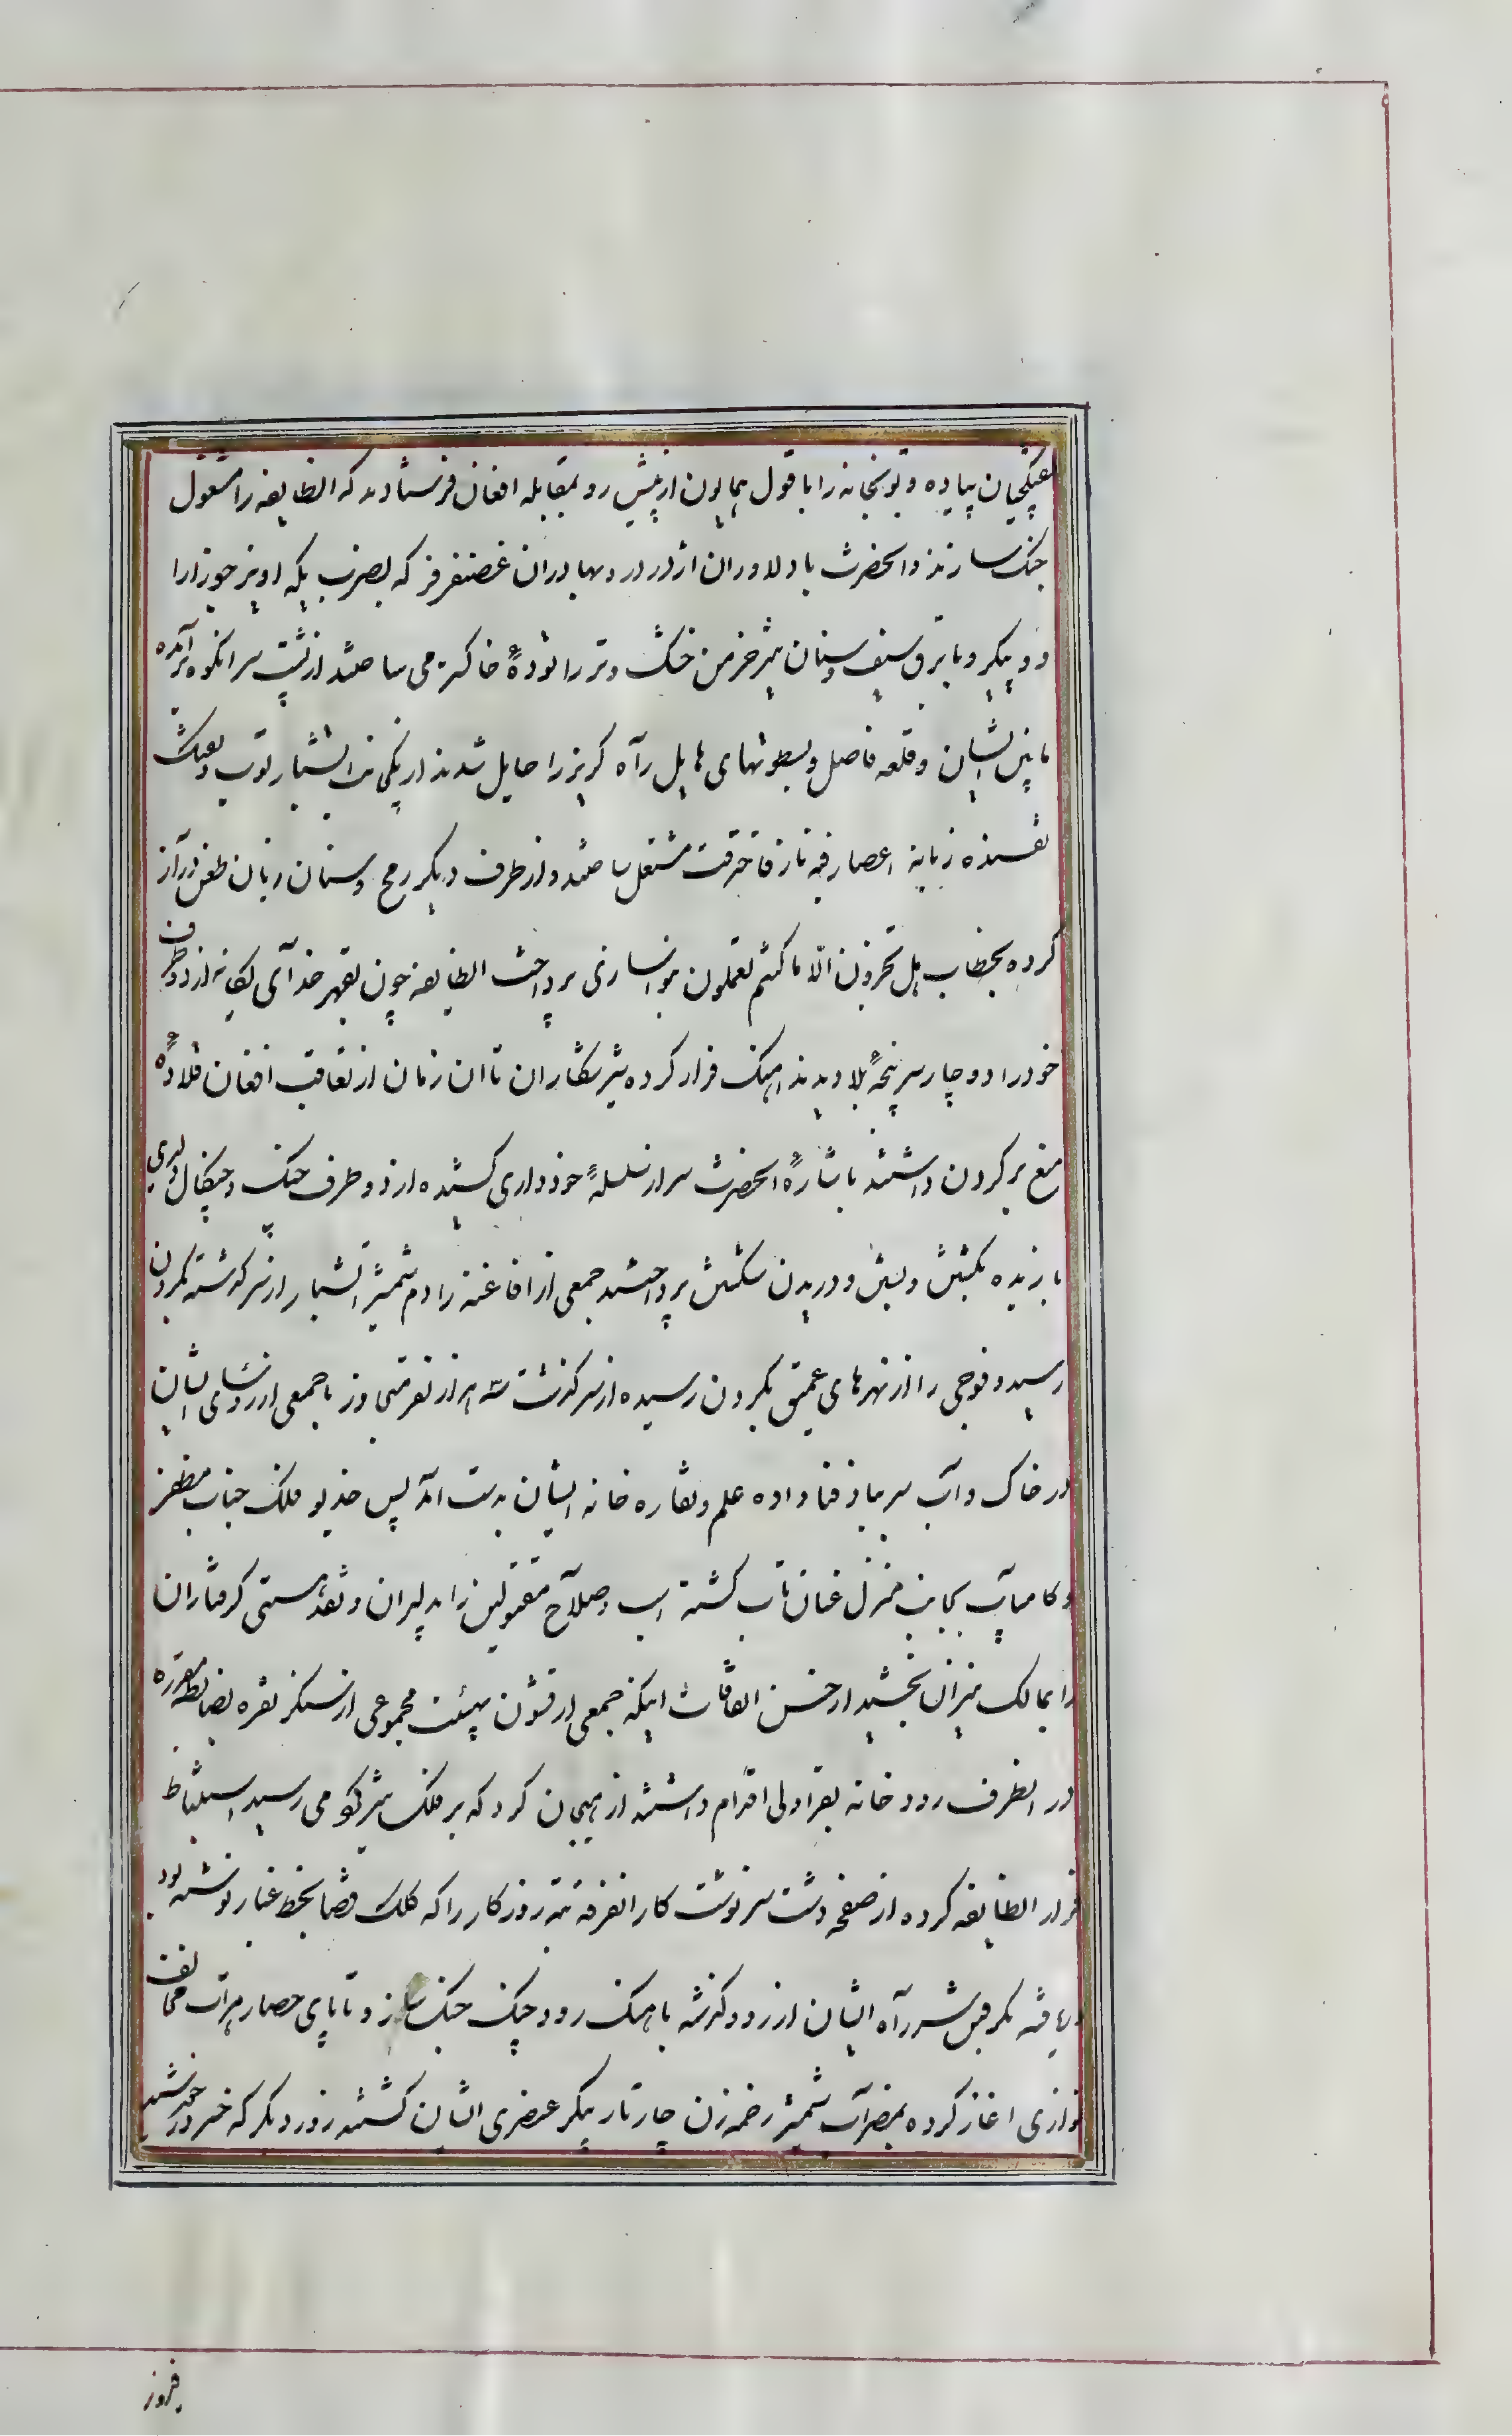 تفنگچیان پیاده و توپخانه را با قول همایون از پیش رو بمقابله افغان فرستادند که انطایفه را مشغول
جنک سازند و انحضرت با دلاوران اژدر در و بهادران غضنفر فر که بضرب یکه اویز جوزا را
دو پیکر و با برق سیف و سنان نیر خرمن خشک و تر را تودهٔ خاکستر می ساختند از پشت سر انکوه برآمده
مابین ایشان و قلعه فاصل و بسطوتهای هایل رآه کریز را حایل شدند از یکی نیران اتشبار توپ و تفنک
تفسنده زبانه اعصار فیه نار فاحترقت مشتعل ساختند و از طرف دیکر رمح و سنان زبان طعن درآز
کرده بخطاب هل تجزون الّا ما کنتم تعملون بر پداخت انطایفه چون بقهر خدآی یکانه از دو طرف
خود را دوچار سرپنجهٔ بلا دیدند اهنک فرار کرده شیر شکاران تا ان زمان از تعاقب افغان قلادهٔ
منع بر کردن داشتند باشارهٔ انحضرت سر از سلسلهٔ خودداری کشیده از دو طرف چنک و چنکال دلیری
یازیده بکشش و بستن و دریدن شکستن پرداختند جمعی از افاغنه را دم شمشیر اتشبار از سر کذشته بکردن
رسید و فوجی را از نهرهای عمیق بکردن رسیده از سر کذشت سه هزار نفر متجاوز با جمعی از رؤسای ایشان
در خاک و آب سر بباد فنا داده علم و نقاره خانه ایشان بدست امد پس خدیو فلک جناب مظفر
و کامیآب بجانب منزل عنان تاب کشته اسب و صلآح مقتولین را بدلیران و نقد هستی کرفتاران
را بمالک نیران بخشید از حسن اتفاقات اینکه جمعی از قشون بهیئت مجموعی از سنکر نقره بضابطه مقرره
در انطرف رودخانه بقراولی اقدام داشتند از هیجان کرد که بر فلک تیز کو می رسید استنباط
فرار انطایفه کرده از صفحه دشت سرنوشت کار انفرقه تیره روزکار را که کلک قضا بخط غبار نوشته بود
دریافته بکرفتن سر رآه ایشان از رود کذشته باهنک رود چنک جنک ساز و تا پای حصار هرات مخالف
نوازی اغاز کرده بمضرآب شمشیر زخمه زن چار تار پیکر عنصری ایشان کشتند روز دیکر که خسرو خورشید
فیروز